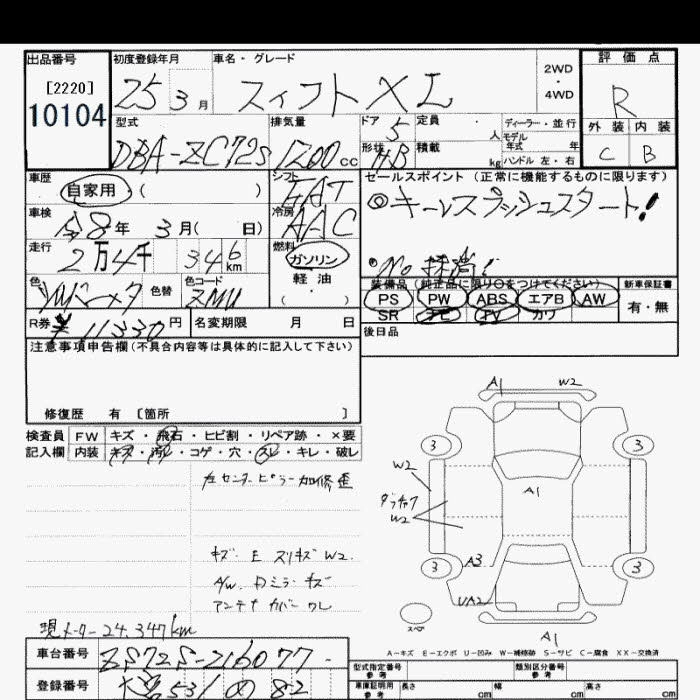 出品番号
[2220]
10104
初度登録年月
25 3月
車名・グレード
スイフト XL
2WD
・
4WD
評価点
R
外装 内装
C B
型式
DBA-ZC72S
排気量
1200cc
ドア 5
形状 HB
定員 ・ 人
積載 kg
ディーラー・並行
モデル年式 年
ハンドル 左・右
車歴
自家用 ( )
シフト
FAT
車検
8年 3月( 日)
冷房
AAC
走行
2万4千346km
燃料
ガソリン
軽油
( )
色
色替
色コード
ZMU
R券 ¥11330円
名変期限 月 日
セールスポイント (正常に機能するものに限ります)
◎キーレスプッシュスタート!
装備品 (純正品に限り○をつけてください)
PS PW ABS エアB AW
SR ナビ TV カワ
新車保証書
有・無
後日品
注意事項申告欄(不具合内容等は具体的に記入して下さい)
修復歴 有 [箇所 ]
検査員 FW キズ・飛石・ヒビ割・リペア跡・×要
記入欄 内装 キズ・汚レ・コゲ・穴・スレ・キレ・破レ
左センターピラー加修歪
キズ E スリキズ W2.
A/W. Dミラーキズ
アンテナカバーワレ
現メーター24.347km
A1 W2
3 3
W2
W2
A1
A3
3 3
UA2
スペア
A1
A-キズ E-エクボ U-凹み W-補修跡 S-サビ C-腐食 XX-交換済
車台番号 ZC72S-216077
登録番号 531 82
型式指定番号
参考
類別区分番号
参考
車庫証明用
参考
長さ cm
幅 cm
高さ cm